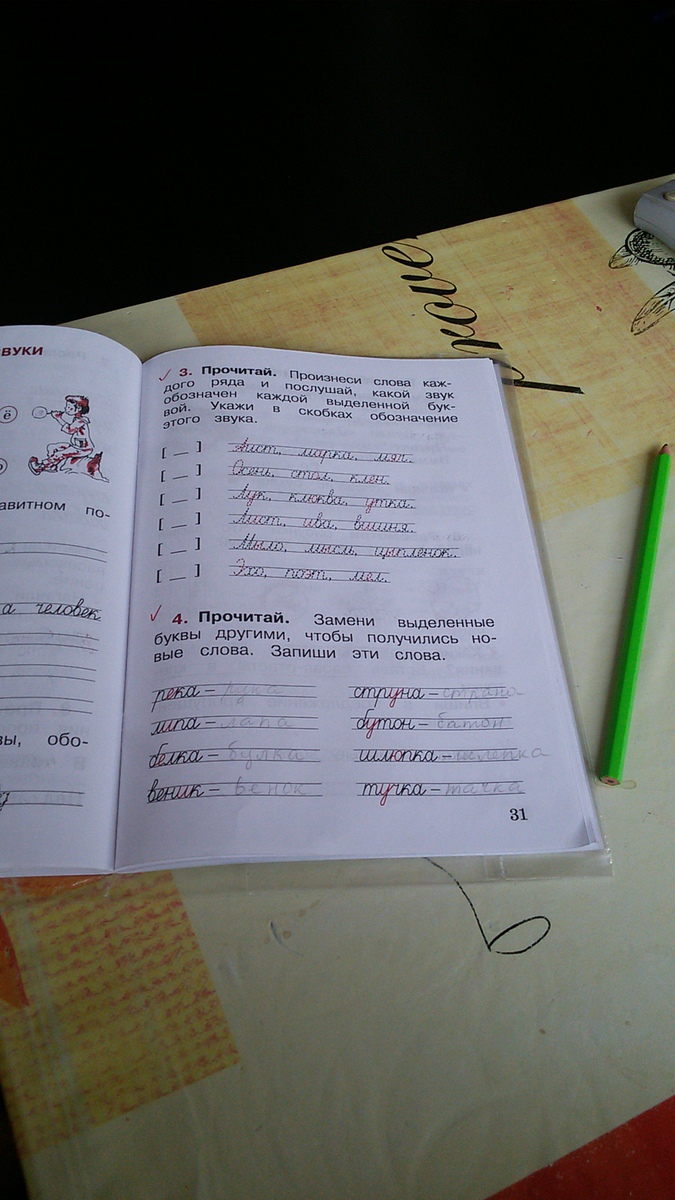 ЗВУКИ
ё
авитном по-
а человек
вы, обо-
3. Прочитай. Произнеси слова каж-
дого ряда и послушай, какой звук
обозначен каждой выделенной бук-
вой. Укажи в скобках обозначение
этого звука.
[ _ ] Аист, марка, мяч.
[ _ ] Осень, стол, клён.
[ _ ] Лук, клюква, утка.
[ _ ] Лист, ива, вишня.
[ _ ] Мыло, мысль, цыплёнок.
[ _ ] Эхо, поэт, мел.
4. Прочитай. Замени выделенные
буквы другими, чтобы получились но-
вые слова. Запиши эти слова.
река – рука струна – страна
липа – лапа бутон – батон
белка – булка шлюпка – шляпка
веник – венок тучка – тачка
31